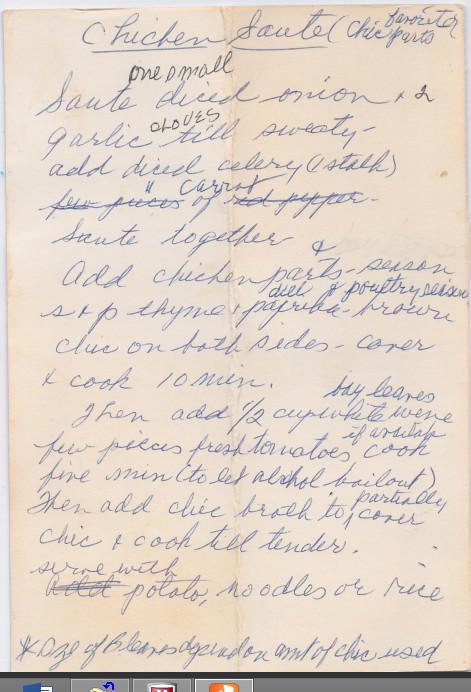 Chicken Saute (favorite chic parts
one small
Saute diced onion + 2
cloves
garlic till sweaty -
add diced celery (1 stalk)
" carrot
few pieces of red pepper -
Saute together
Add chicken parts & - season
dill & poultry season
s + p thyme + paprika - brown
chic on both sides - cover
+ cook 10 min.
bay leaves
Then add 1/2 cup white wine
if availab
few pieces fresh tomatoes cook
five min (to let alcohol boil out)
partially
Then add chic broth to cover
chic + cook till tender.
serve with
Add potato, noodles or rice
* size of B leaves depend on amt of chic used